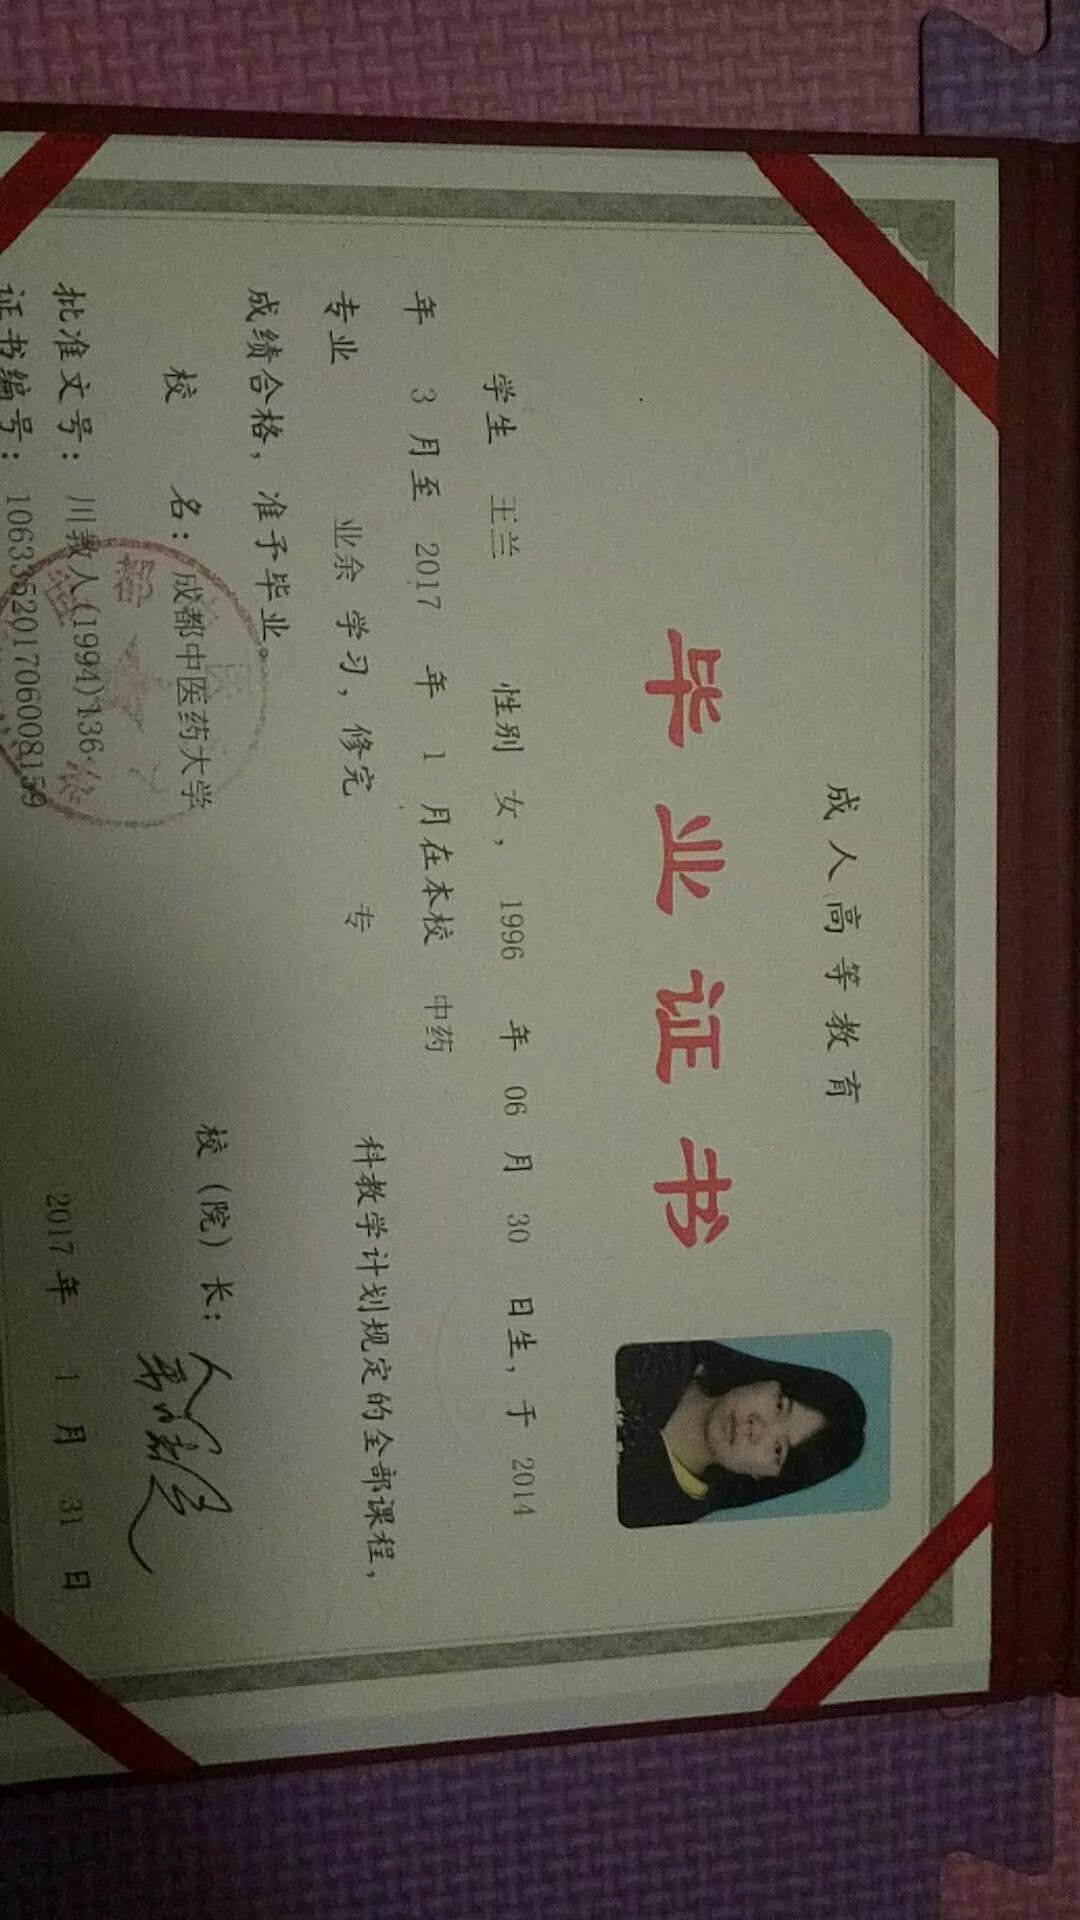 成人高等教育
毕业证书
学生 王兰 性别 女，1996 年 06 月 30 日生，于 2014
年 3 月至 2017 年 1 月在本校 中药
专业 业余 学习，修完 专 科教学计划规定的全部课程，
成绩合格，准予毕业。
校 名：成都中医药大学 校（院）长：
批准文号：川教人(1994)136 2017 年 1 月 31 日
证书编号：106335201706008159